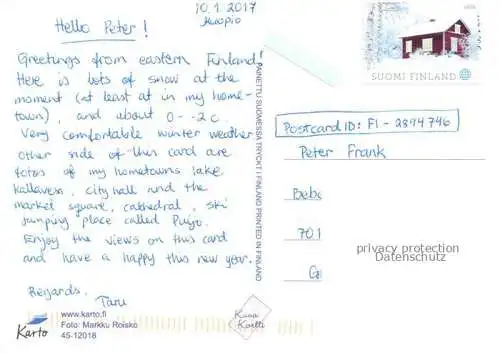 10.1 2017
Kuopio
Hello Peter!
Greetings from eastern Finland!
Here is lots of snow at the
moment (at least at in my home-
town), and about 0--2c.
Very comfortable winter weather.
Other side of this card are
fotos of my hometowns lake
kallavesi, city hall and the
market square, cathedral, ski
jumping place called Puijo.
Enjoy the views on this card
and have a happy this new year.
Regards,
Taru
www.karto.fi
Foto: Markku Roisko
45-12018
Karto
PAINETTU SUOMESSA TRYCKT I FINLAND PRINTED IN FINLAND
SUOMI FINLAND
Postcard ID: FI-2894746
Peter Frank
701
privacy protection
Datenschutz